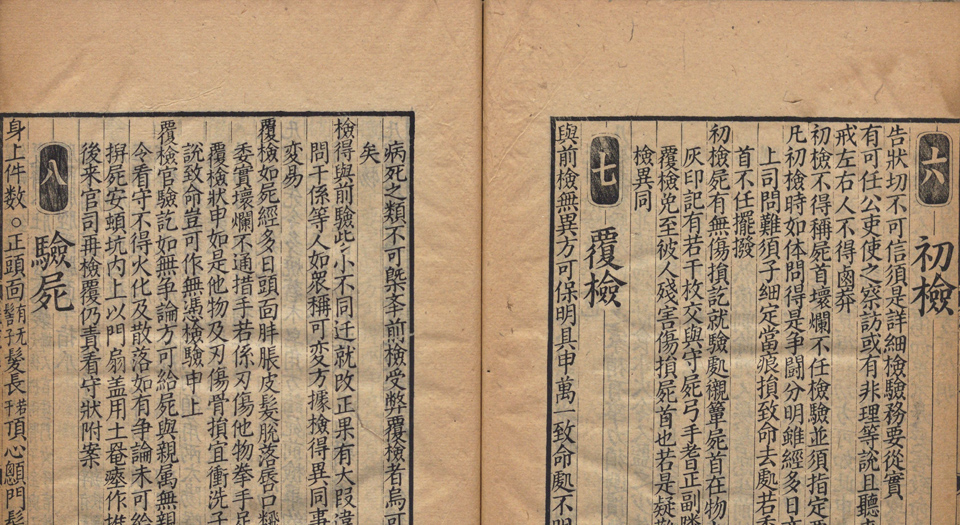 六 初檢
告狀切不可信須是詳細檢驗務要從實
有可任公吏使之察訪或有非理等說且聽
戒左右人不得鹵莽
初檢不得稱屍首壞爛不任檢驗並須指定
凡初檢時如体問得是爭鬪分明雖經多日
上司問難須子細定當痕損致命去處若
首不任擺撥
初檢屍有無傷損訖就驗處襯簟屍首在物
灰印記有若干枚交與守屍弓手耆正副隣
覆檢免至被人殘害傷損屍首也若是疑
檢異同
七 覆檢
與前檢無異方可保明具申萬一致命處不明
病死之類不可槩前檢受弊覆檢者烏可
矣
檢得與前驗些小不同迁就改正果有大叚違
問干係等人如衆稱可变方據檢得異同事
变易
覆檢如屍經多日頭面胖脹皮髪脫落唇口
委實壞爛不通措手若係刃傷他物拳手足
覆檢狀申如是他物及刃傷骨損宜衝洗子
說致命豈可作無憑檢驗申上
覆檢官驗訖如無爭論方可給屍與親属無親
令看守不得火化及散落如有爭論未可給
掤屍安頓坑内上以門扇盖用土罨瘞作堆
後來官司再檢覆仍責看守狀附案
八 驗屍
身上件数○正頭面有无髻子髪長若干頂心顖門髪